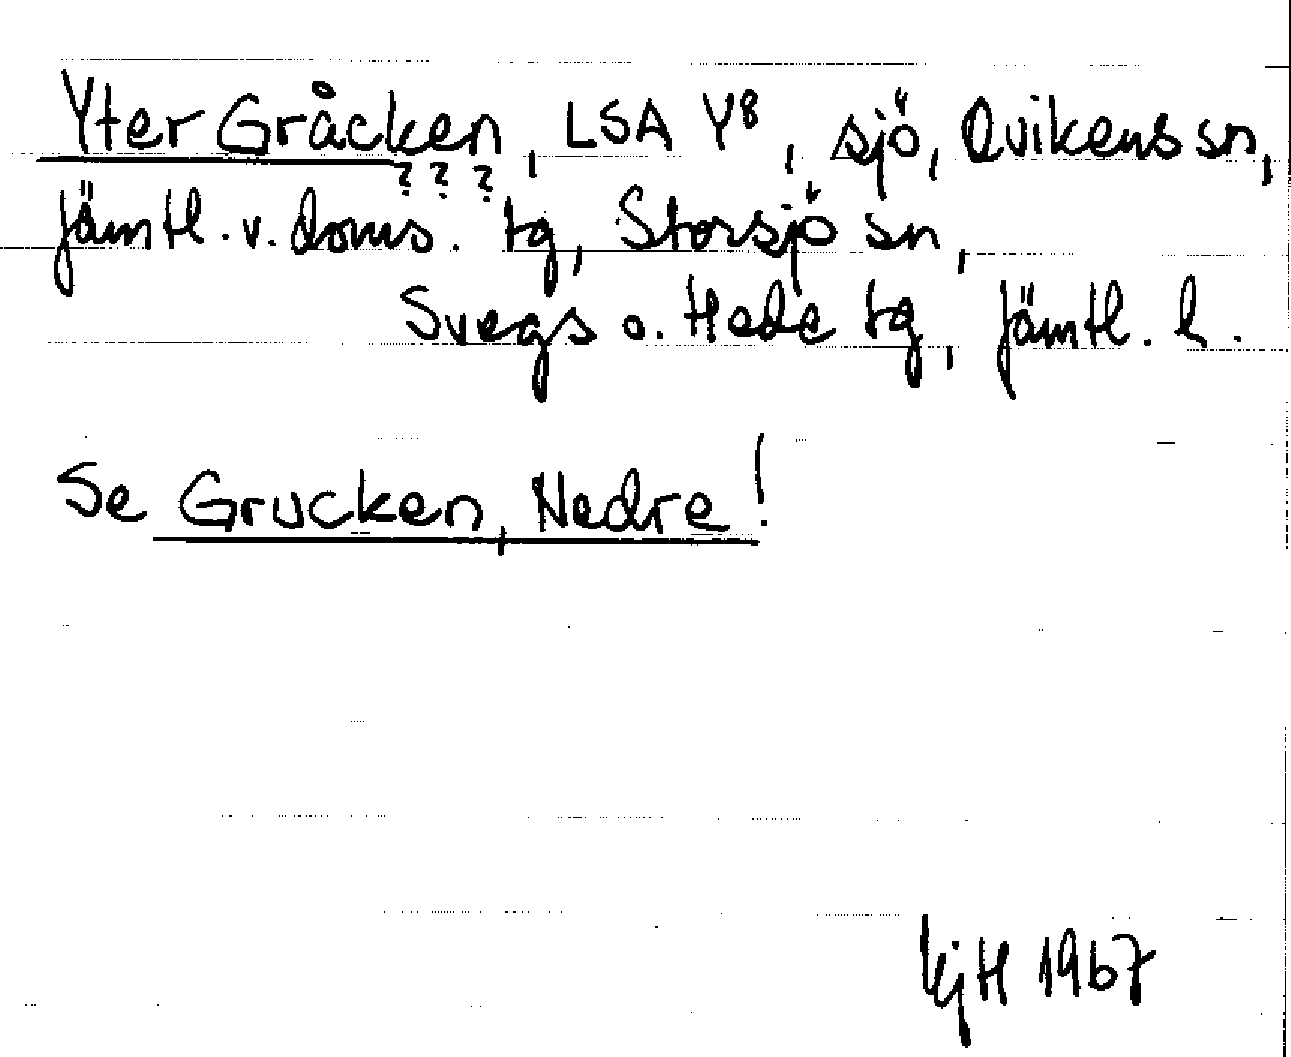 Yter Gråcken, LSA Y8, sjö, Qvikens sn,
? ? ?
Jämtl. v. doms. tg, Storsjö sn,
Svegs o. Hede tg, Jämtl. l.
Se Grucken, Nedre!
KjH 1967